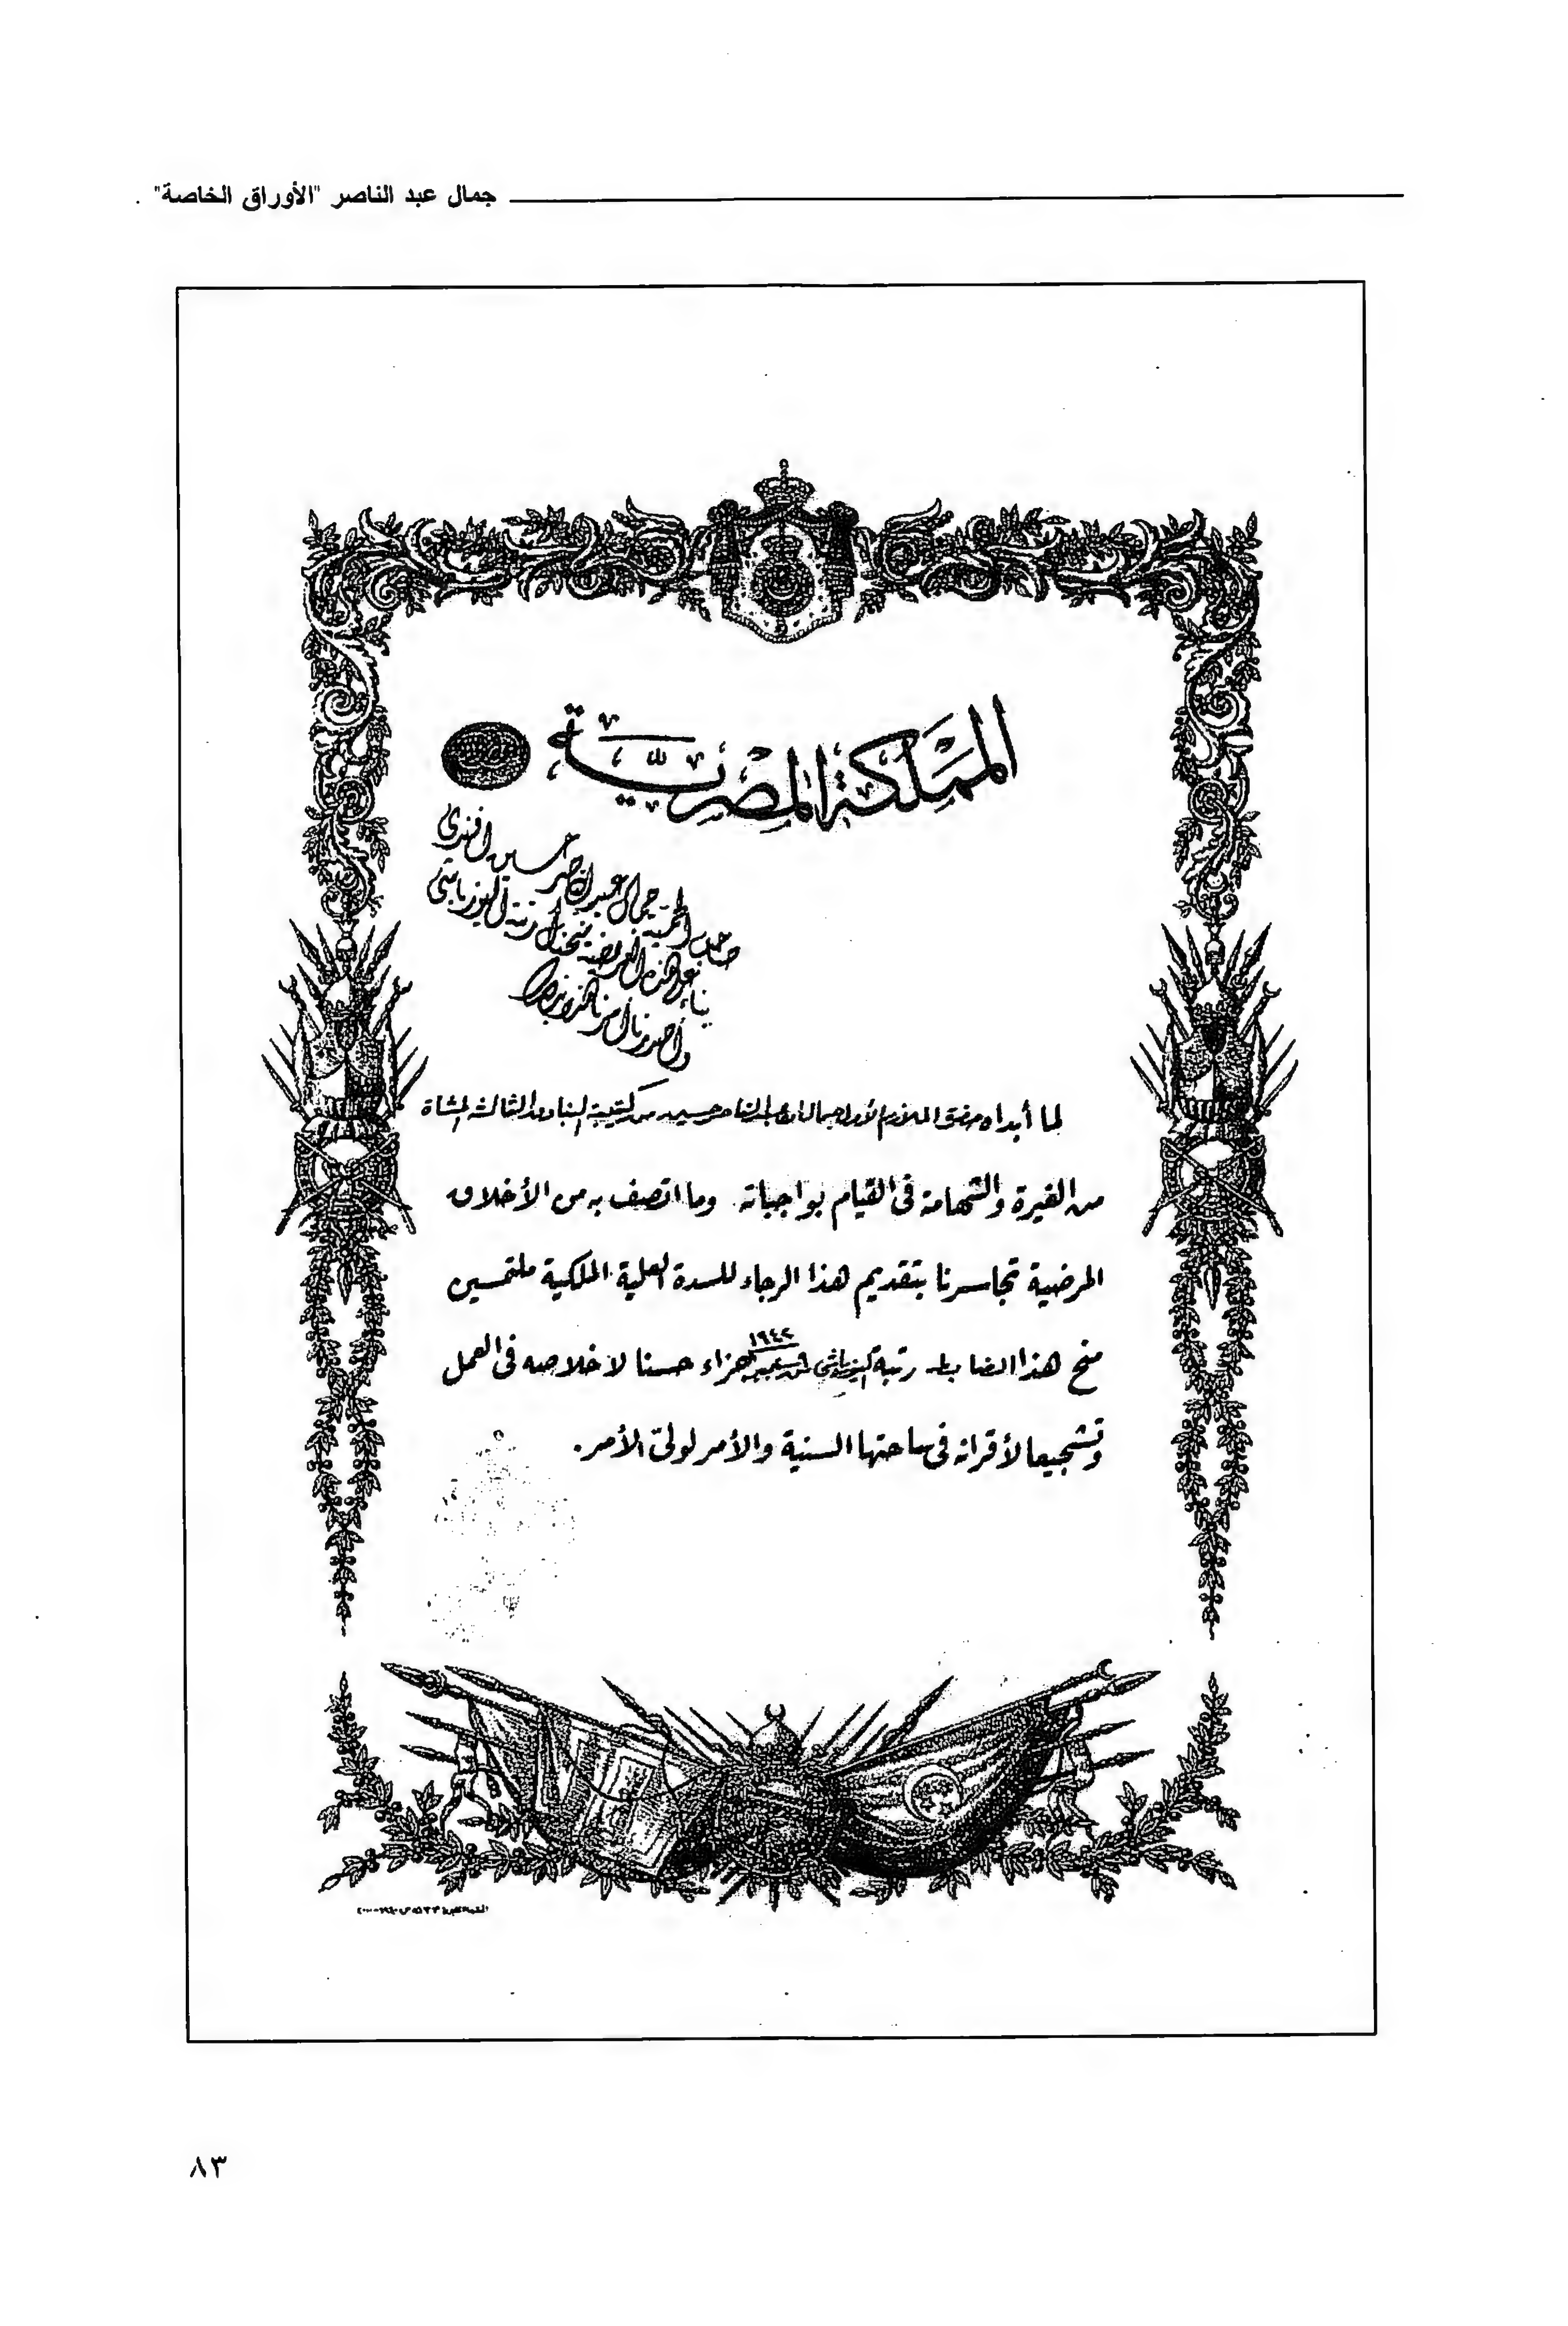 جمال عبد الناصر "الأوراق الخاصة"
المملكة المصرية
حسين افندى
صاحب الحمية جمال عبد الناصر
بناء على هذه العريضة منحناك رتبة اليوزباشى
وأصدرنا أمرنا هذا
لما أبداه حضرة الملازم الأول جمال عبد الناصر حسين من كتيبة البنادق الثالثة المشاة
من الغيرة والشهامة فى القيام بواجباته وما اتصف به من الأخلاق
المرضية تجاسرنا بتقديم هذا الرجاء للسدة العلية الملكية ملتمسين
١٩٤٢
منح هذا الضابط رتبة اليوزباشى جزاء حسنا لاخلاصه فى العمل
وتشجيعا لأقرانه فى ساحتها السنية والأمر لولى الأمر.
٨٣